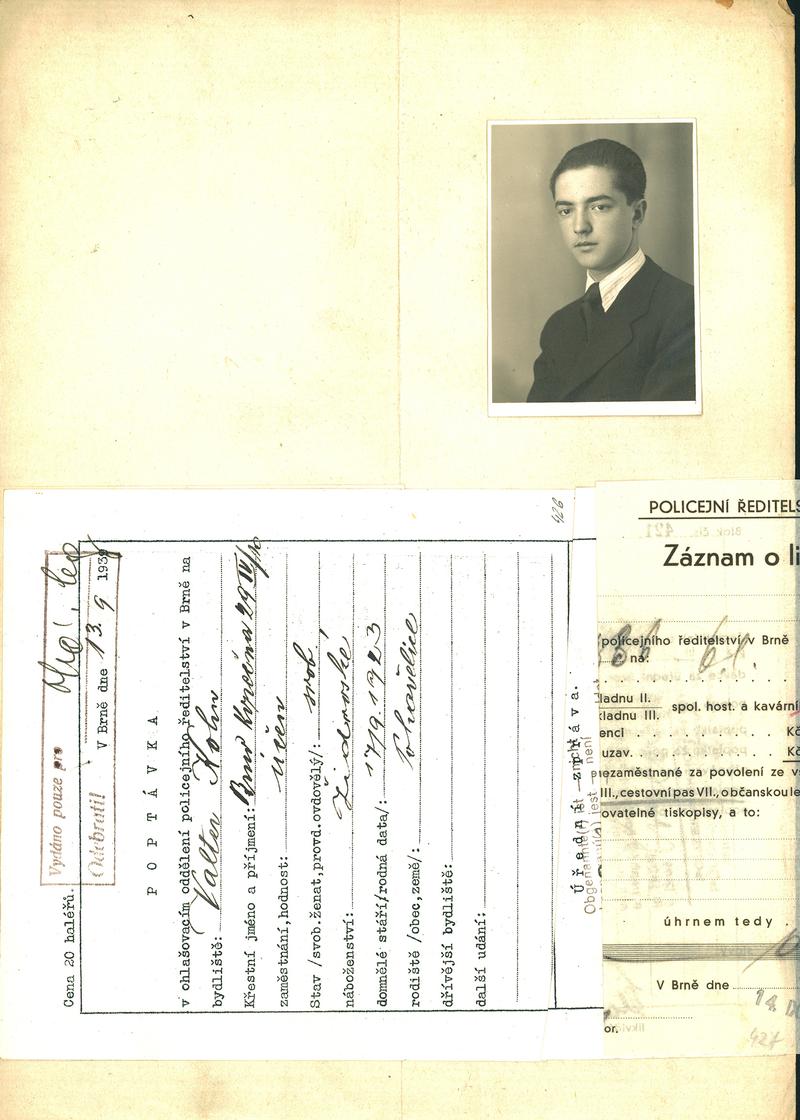 Cena 20 haléřů.
Vydáno pouze pro
Odebratil
V Brně dne 13. 9 1939
P O P T Á V K A
v ohlašovacím oddělení policejního ředitelství v Brně na
Valter Kohn
bydliště: Brno
Křestní jméno a příjmení:
zaměstnání, hodnost: učen
Stav /svob.ženat, provd. ovdovělý/: svob
náboženství: židovské
domnělé stáří/rodná data/: 17/9. 1923
rodiště /obec, země/: Pohořelice
dřívější bydliště:
další udání:
426
Ú ř e d n í z p r á v a.
není
POLICEJNÍ ŘEDITELS
Blok čís. 421
Záznam o li
policejního ředitelství v Brně
na:
kladnu II.
kladnu III.
spol. host. a kavární
enci Kč
uzav. Kč
nezaměstnané za povolení ze v
III., cestovní pas VII., občanskou le
ovatelné tiskopisy, a to:
úhrnem tedy
V Brně dne
14. IX
or.
427